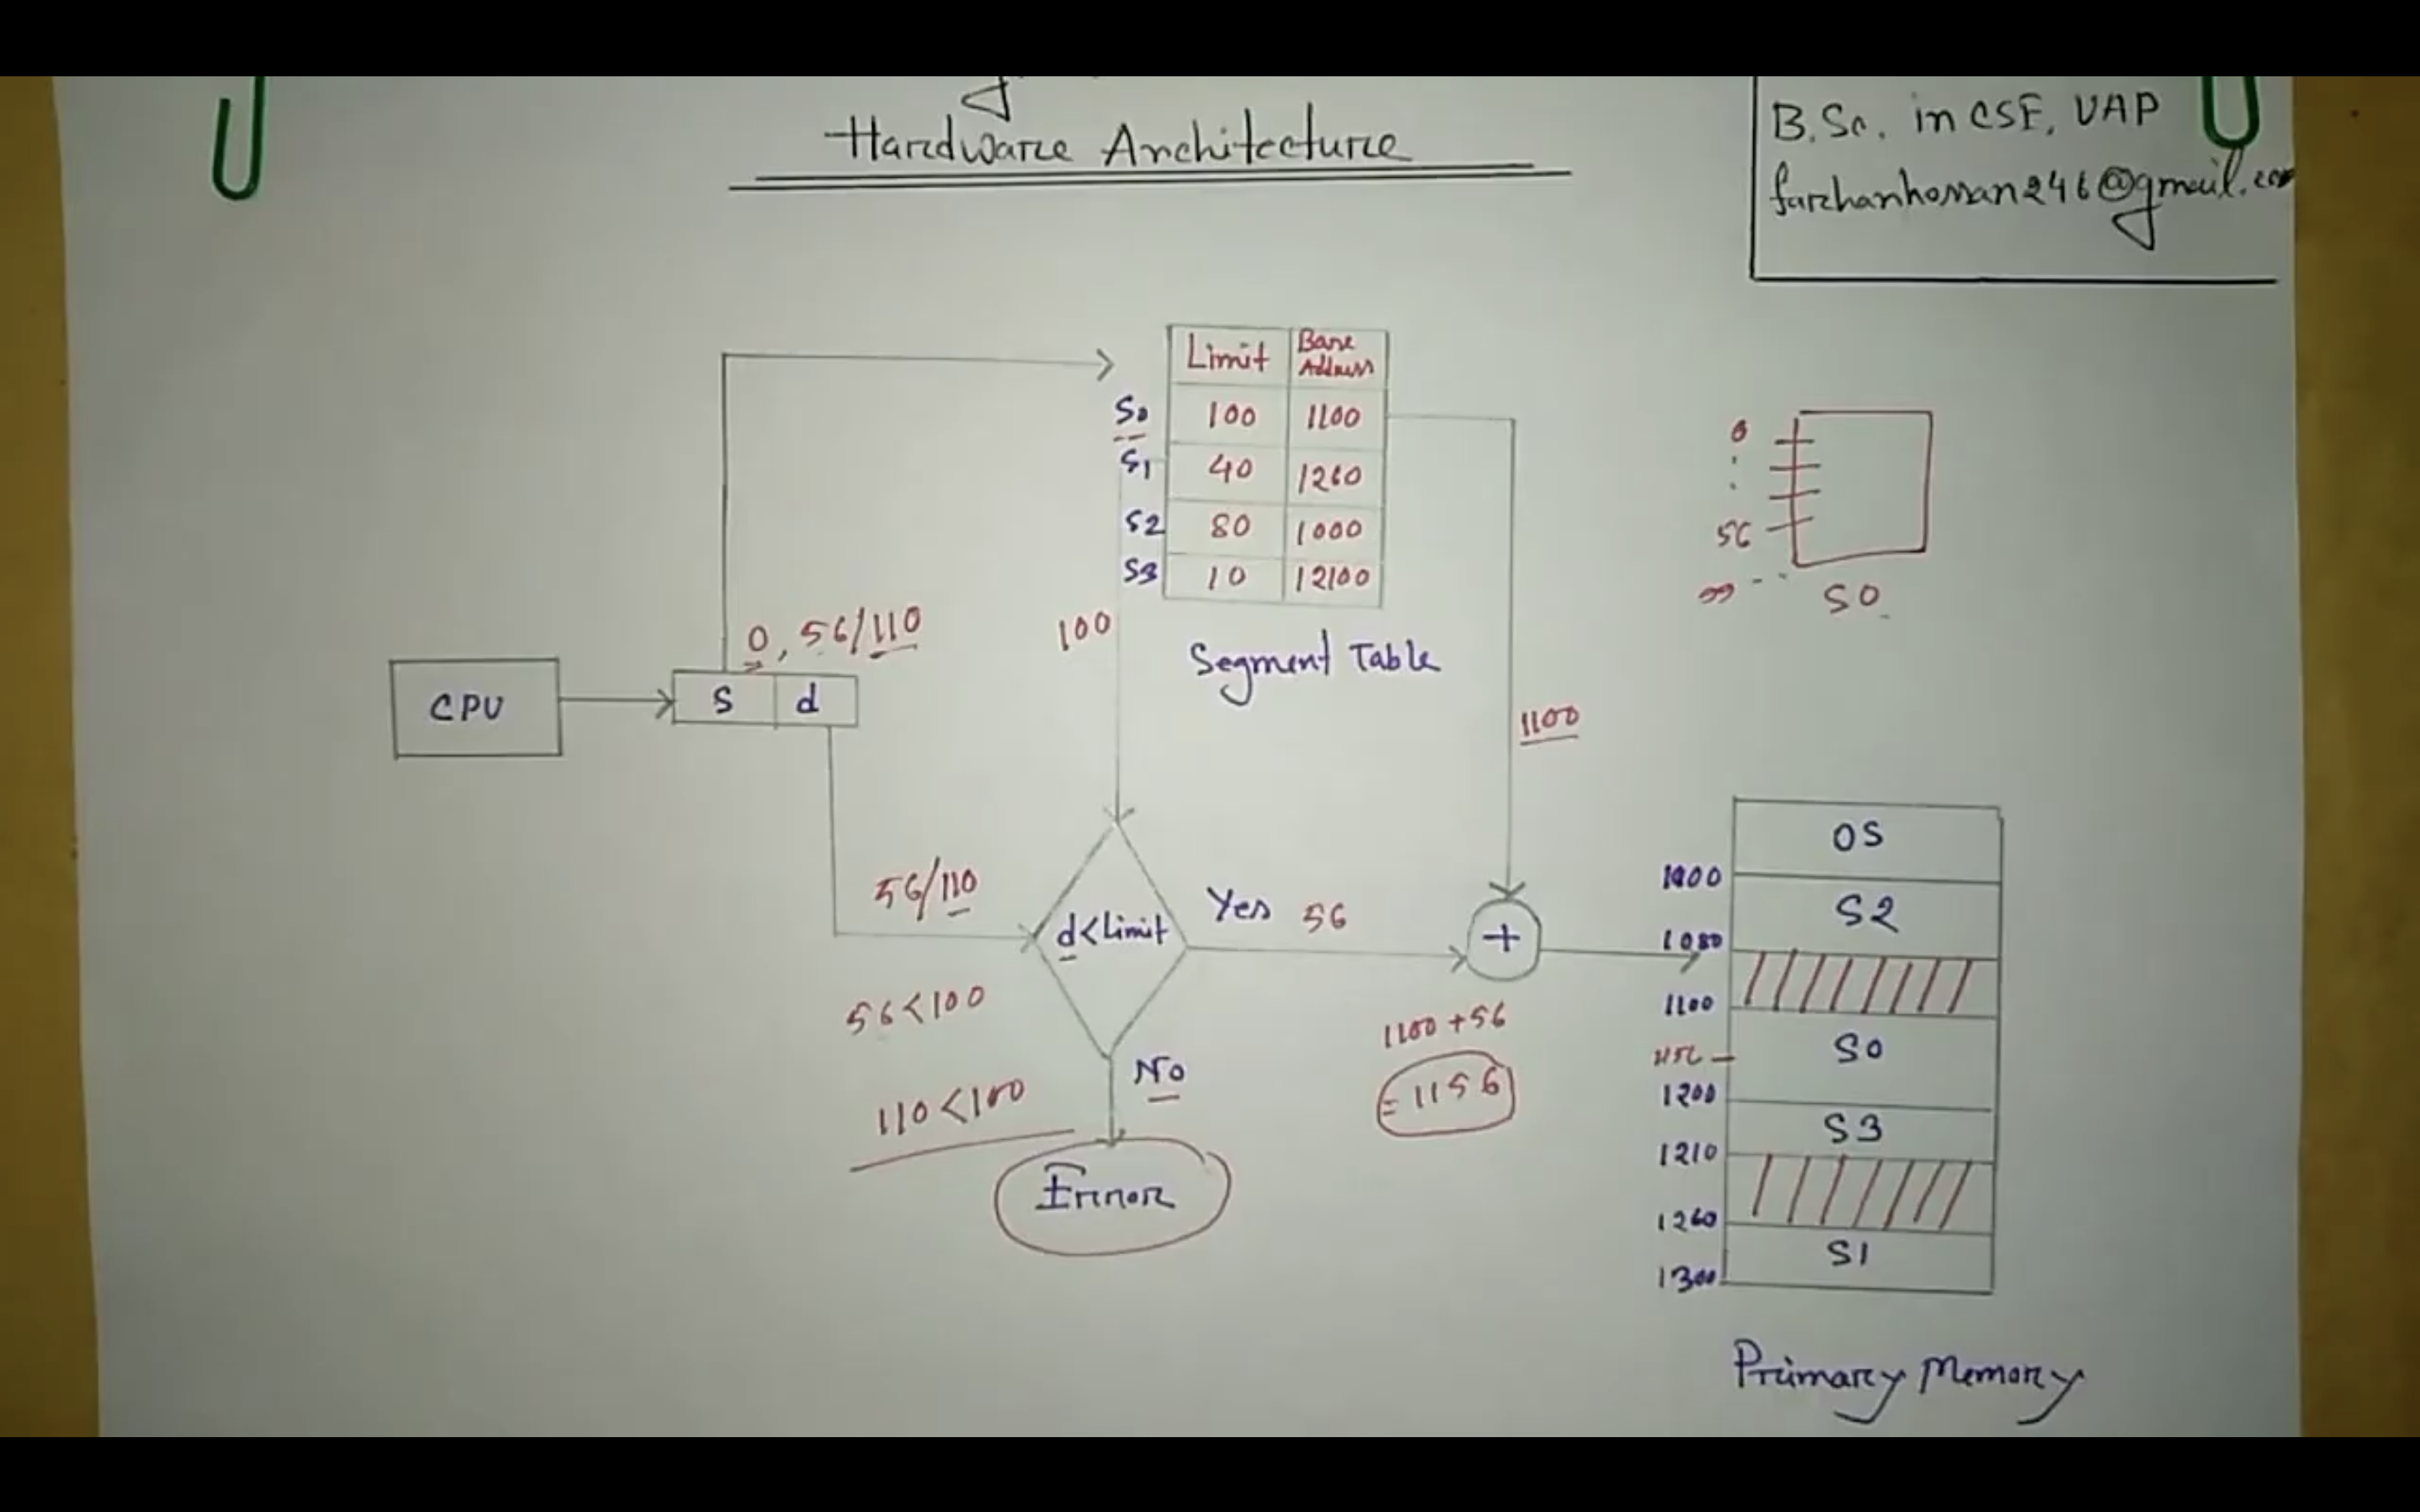 Hardware Architecture
B.Sc. in CSE, UAP
farhanhossan246@gmail.com
Limit Base Address
S0 100 1100
S1 40 1260
S2 80 1000
S3 10 12100
Segment Table
0
56
99
S0
0, 56/110
100
CPU
S d
1100
56/110
d<Limit
Yes 56
+
56<100
110<100
No
Error
1100+56
=1156
OS
1000
S2
1080
1100
S0
1156
1200
S3
1210
1260
S1
1300
Primary Memory